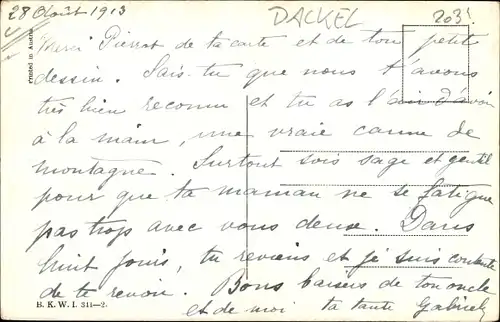 28 Août 1913
DACKEL
203.
Printed in Austria
Merci Pierrot de ta carte et de ton petit
dessin. Sais-tu que nous t'avons
très bien reconnu et tu as l'air d'avoir
à la main, une vraie canne de
montagne. Surtout sois sage et gentil
pour que ta maman ne se fatigue
pas trop avec vous deux. Dans
huit jours, tu reviens et je suis contente
de te revoir. Bons baisers de ton oncle
B. K. W. I. 311—2.
et de moi ta tante Gabriel